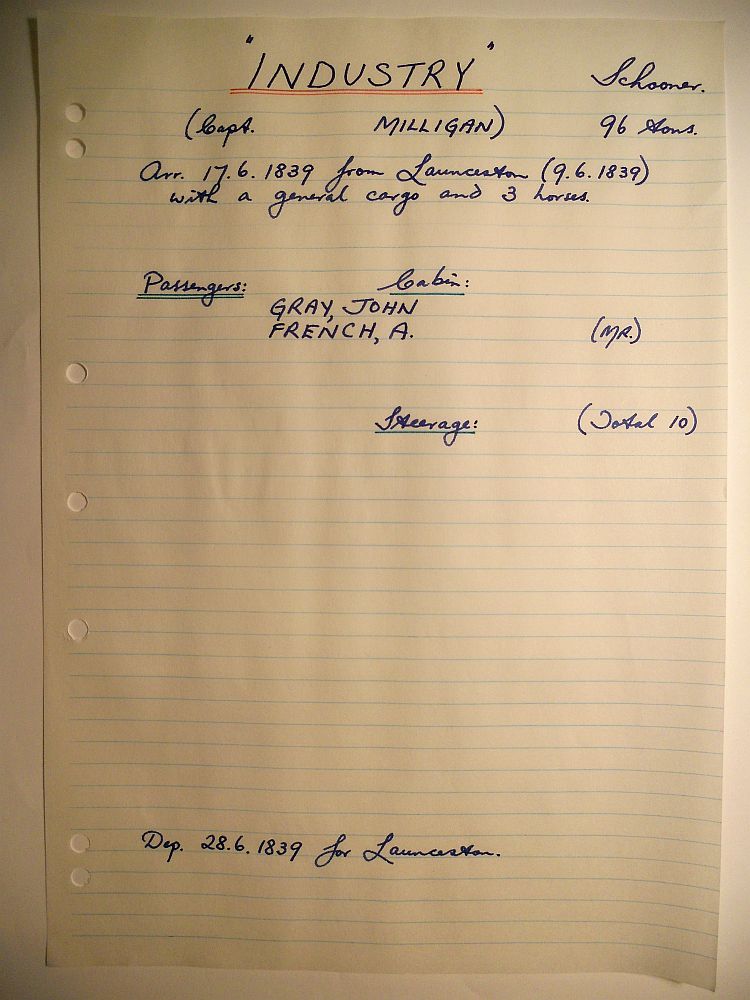 "INDUSTRY" Schooner.
(Capt. MILLIGAN) 96 tons.
Arr. 17.6.1839 from Launceston (9.6.1839)
with a general cargo and 3 horses.
Passengers: Cabin:
GRAY, JOHN
FRENCH, A. (MR.)
Steerage: (Total 10)
Dep. 28.6.1839 for Launceston.